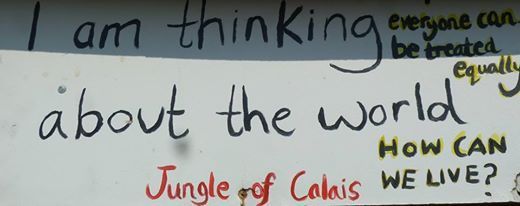 I am thinking
everyone can
be treated
equally
about the world
HOW CAN
WE LIVE?
Jungle of Calais